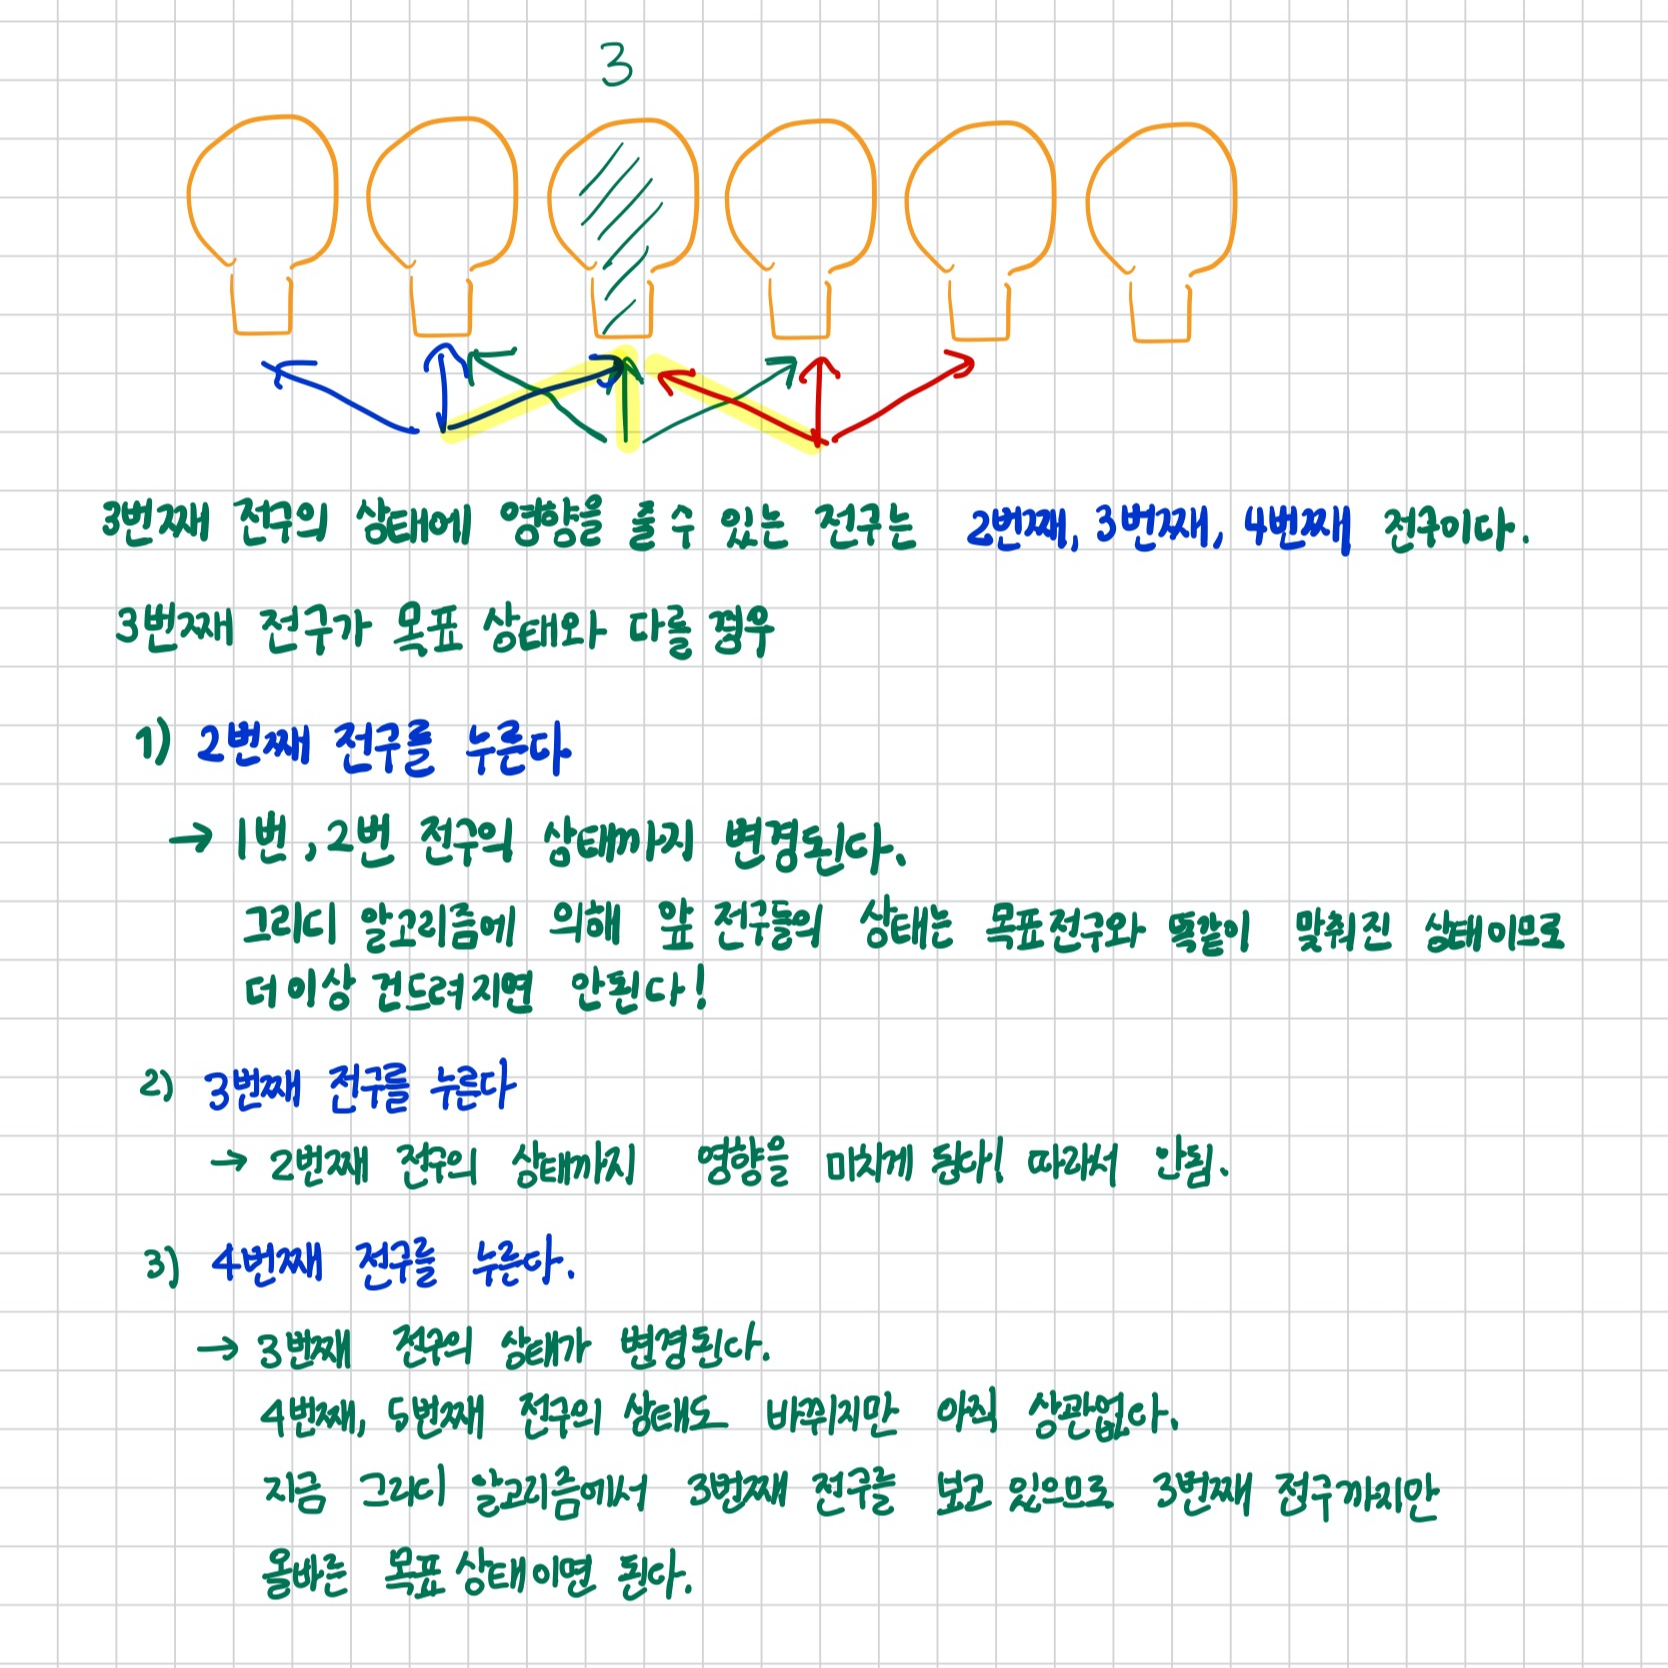 3
3번째 전구의 상태에 영향을 줄 수 있는 전구는 2번째, 3번째, 4번째 전구이다.
3번째 전구가 목표 상태와 다를 경우
1) 2번째 전구를 누른다
→ 1번, 2번 전구의 상태까지 변경된다.
그리디 알고리즘에 의해 앞 전구들의 상태는 목표전구와 똑같이 맞춰진 상태이므로
더 이상 건드려지면 안된다!
2) 3번째 전구를 누른다
→ 2번째 전구의 상태까지 영향을 미치게 된다! 따라서 안됨.
3) 4번째 전구를 누른다.
→ 3번째 전구의 상태가 변경된다.
4번째, 5번째 전구의 상태도 바뀌지만 아직 상관없다.
지금 그리디 알고리즘에서 3번째 전구를 보고 있으므로 3번째 전구까지만
올바른 목표 상태이면 된다.